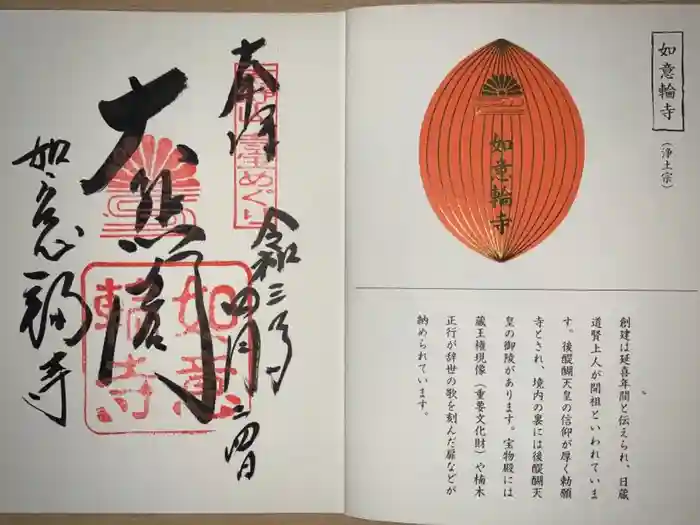 如意輪寺
（浄土宗）
如意輪寺
創建は延喜年間と伝えられ、日蔵
道賢上人が開祖といわれていま
す。後醍醐天皇の信仰が厚く勅願
寺とされ、境内の裏には後醍醐天
皇の御陵があります。宝物殿には
蔵王権現像（重要文化財）や楠木
正行が辞世の歌を刻んだ扉などが
納められています。
奉拝
令和三年
四月二四日
如意輪寺
如意
輪寺